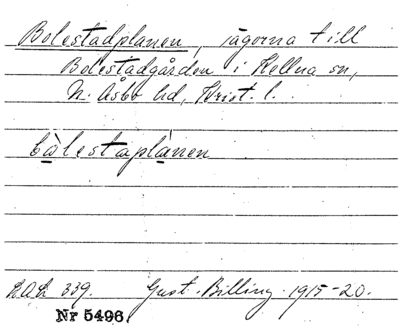 Bolestadplanen, ägorna till
Bolestadgården i Hellna sn,
N. Åsbo hd, Krist. l.
bålestaplánen
LAL 339. Gust. Billing. 1915-20.
Nr 5496.